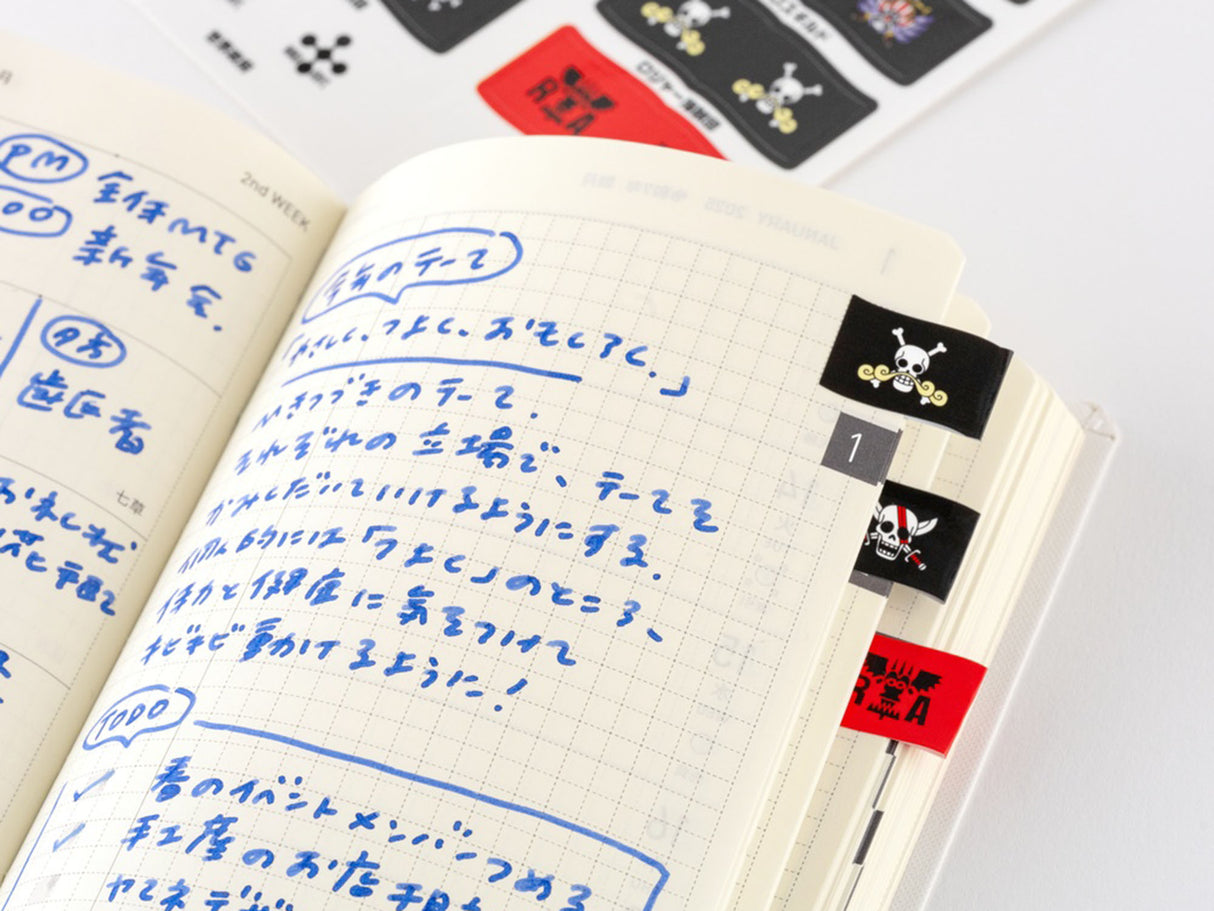 世界政府
ロジャー海賊団
R A
2nd WEEK
PM
全体MTG
新年会.
夕方
歯医者
七草
JANUARY 2025 令和7年 睦月
1
今年のテーマ
「やさしく、つよく、おもしろく。」
ひきつづきのテーマ.
それぞれの立場で、テーマを
かみくだいていけるようにする.
個人的には「つよく」のところ、
体力と健康に気をつけて
キビキビ動けるように!
1
R A
TODO
✓ 春のイベントメンバーつめる
✓ 手土産のお店